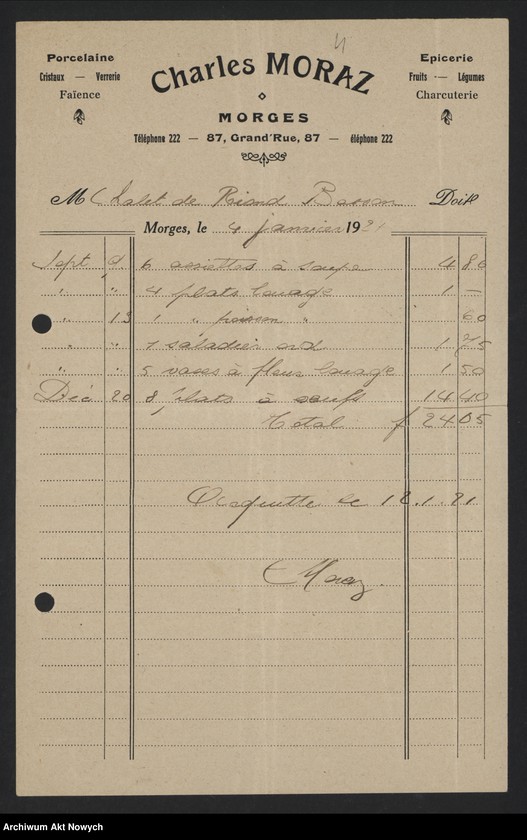 Porcelaine
Cristaux — Verrerie
Faïence
Charles MORAZ
MORGES
Téléphone 222 — 87, Grand'Rue, 87 — éléphone 222
Epicerie
Fruits — Légumes
Charcuterie
M Chalet de Riond Bosson Doit
Morges, le 4 janvier 1921
Sept 9 6 assiettes à soupe 4 80
" " 4 plats louage 1 —
" 13 1 " poisson " 60
" " 1 saladier 1 75
" " 5 vases à fleur louage 1 50
Déc 20 8 plats à 14 40
Total f 24 05
Acquitté le 12.1.21
Moraz
Archiwum Akt Nowych